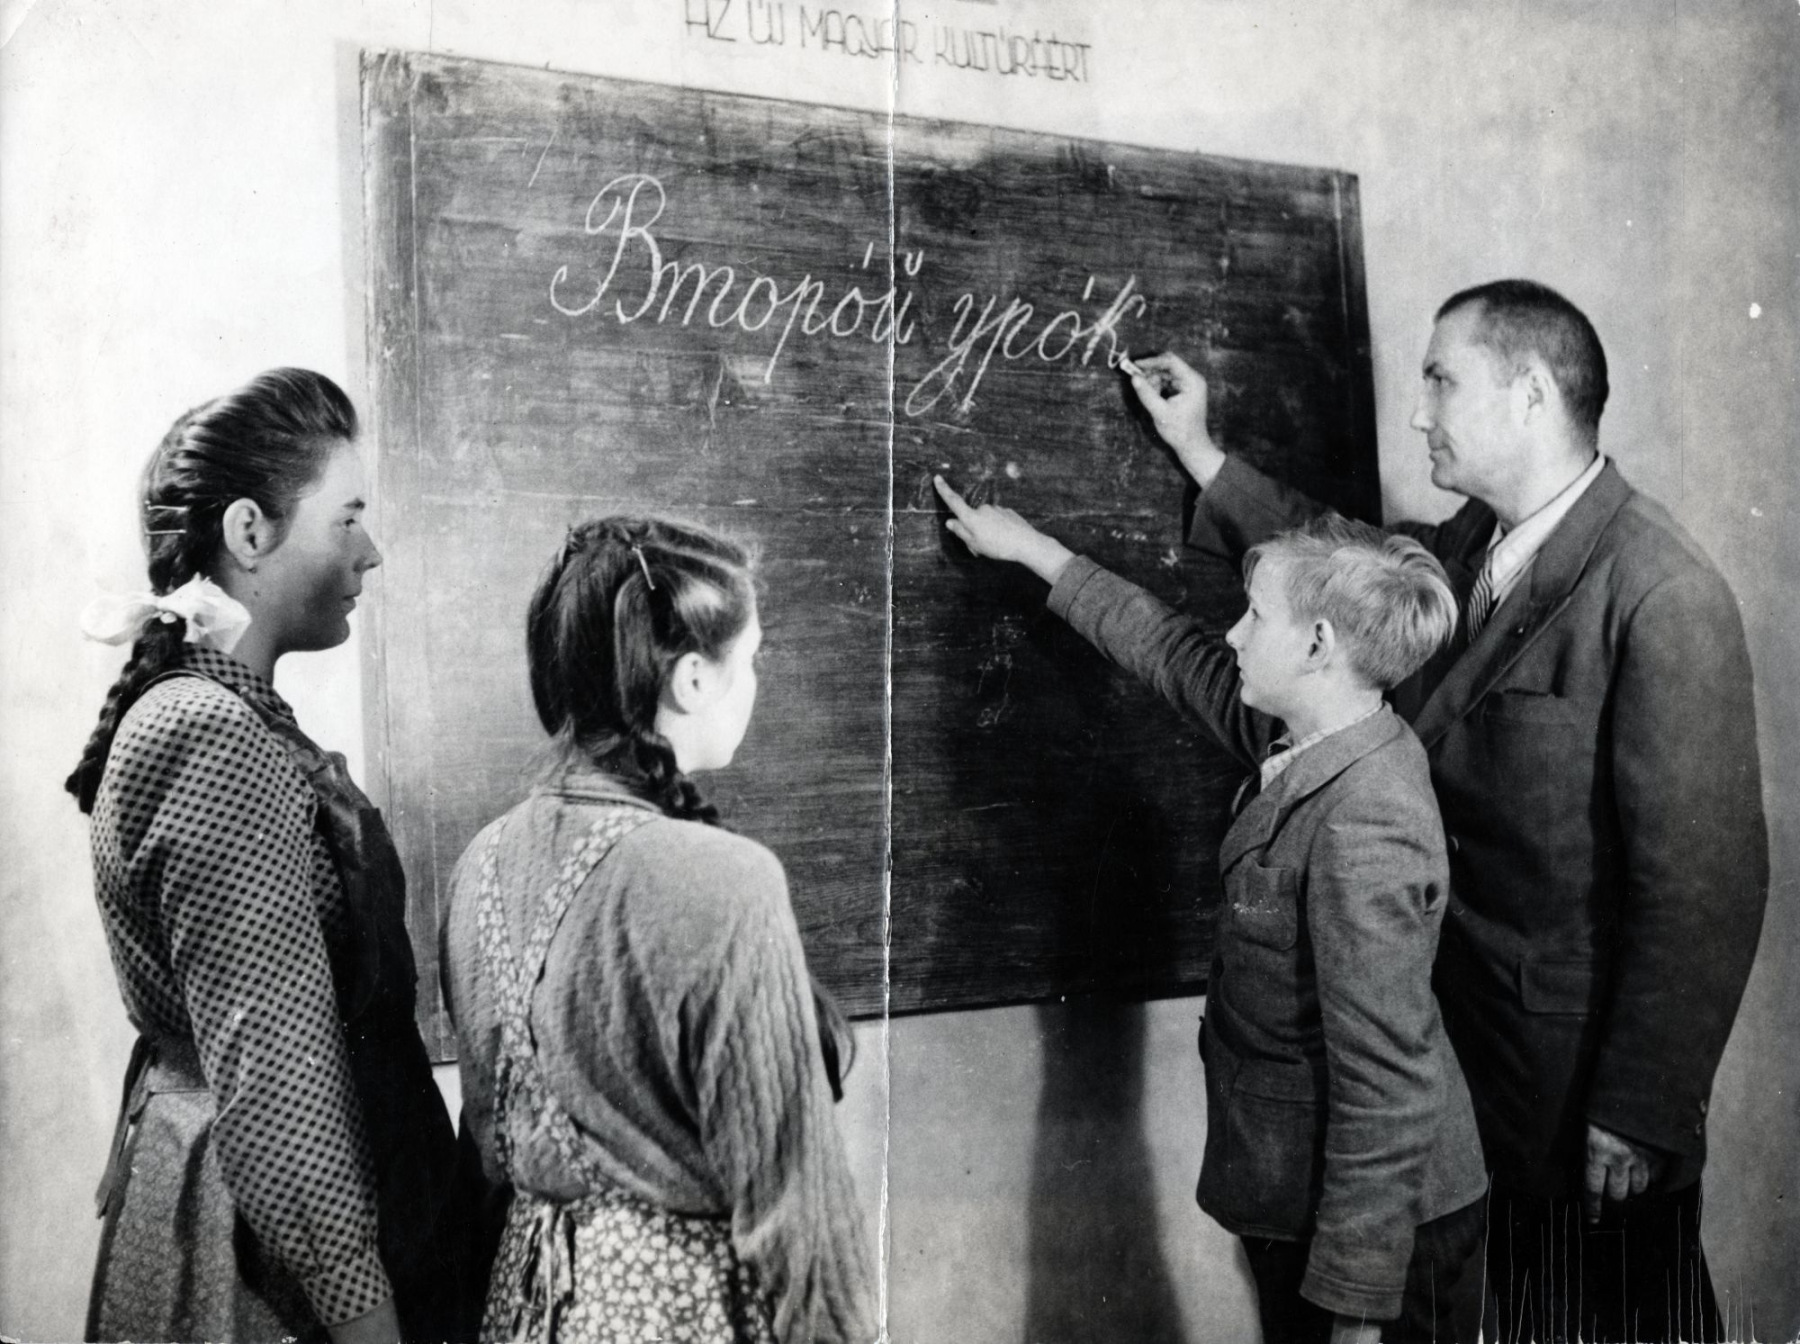 AZ ÚJ MAGYAR KULTÚRÁÉRT
Вторóй урóк